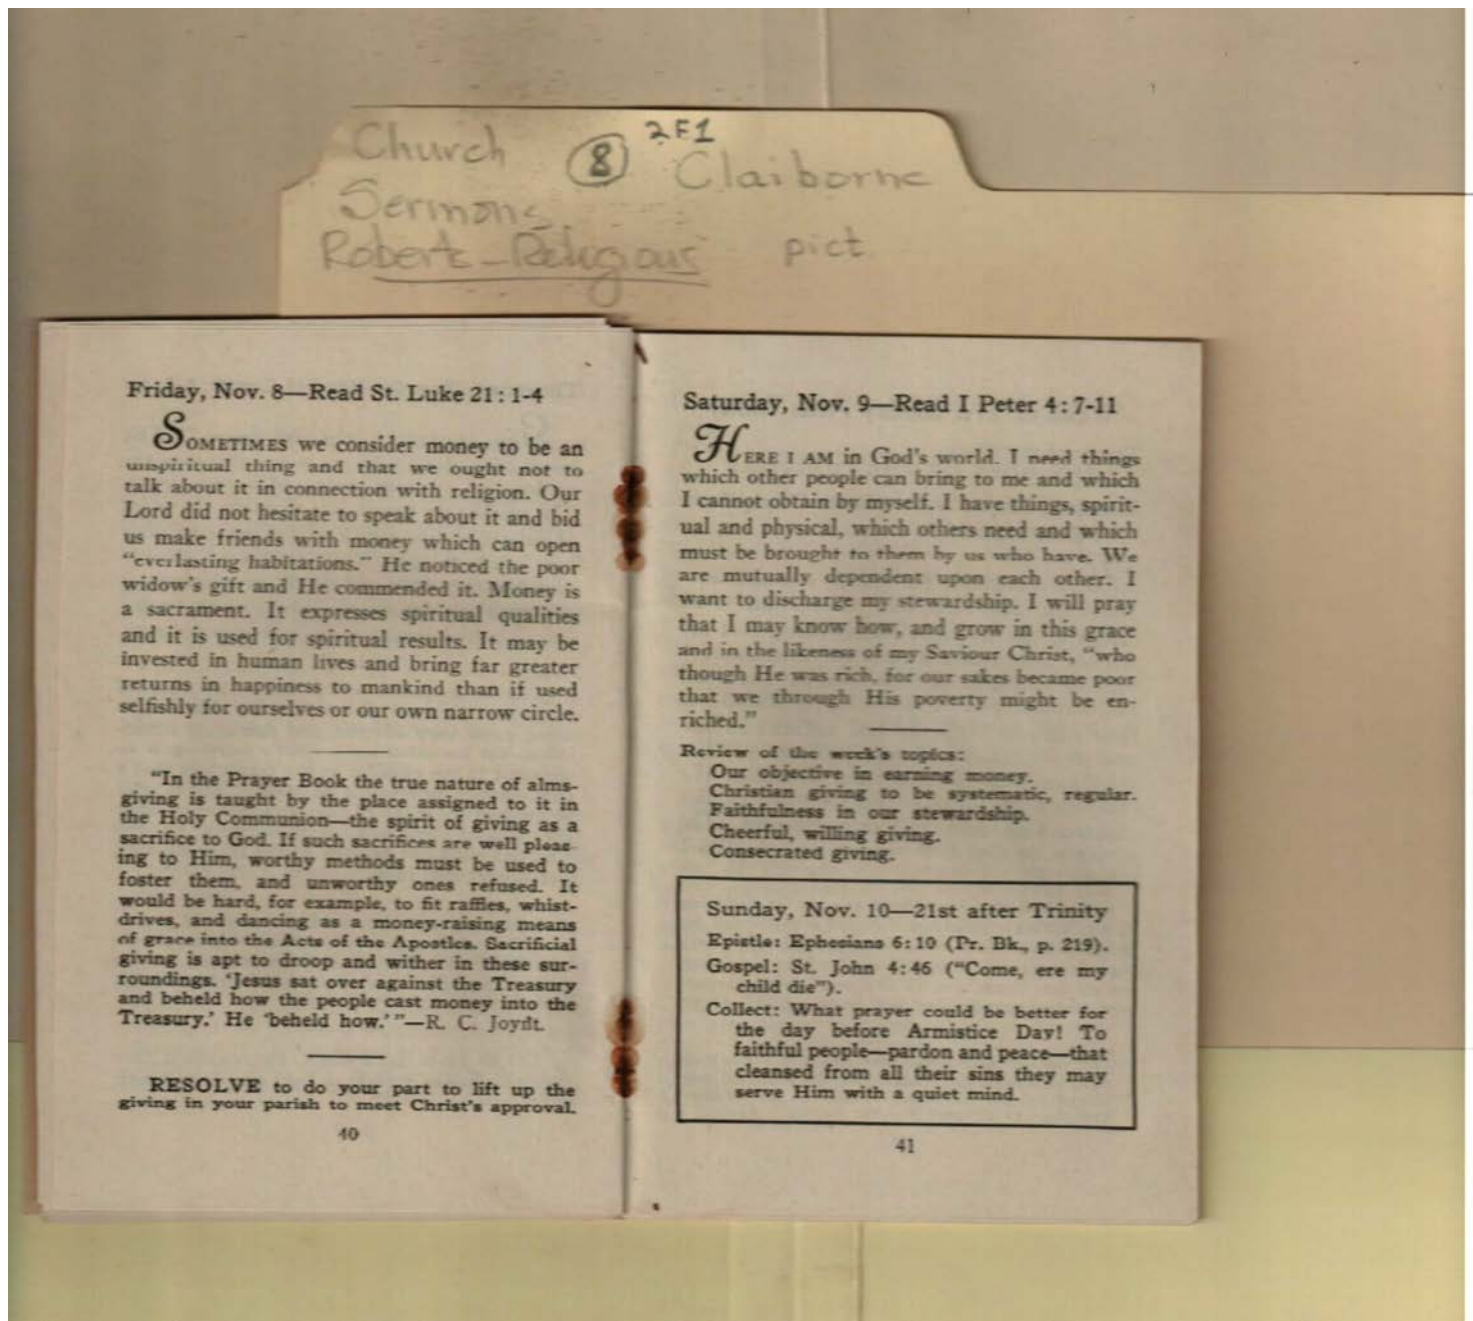 Church ⑧ 2F1 Claiborne
Sermons
Robert - Religious pict
Friday, Nov. 8—Read St. Luke 21: 1-4
SOMETIMES we consider money to be an
unspiritual thing and that we ought not to
talk about it in connection with religion. Our
Lord did not hesitate to speak about it and bid
us make friends with money which can open
“everlasting habitations.” He noticed the poor
widow's gift and He commended it. Money is
a sacrament. It expresses spiritual qualities
and it is used for spiritual results. It may be
invested in human lives and bring far greater
returns in happiness to mankind than if used
selfishly for ourselves or our own narrow circle.
“In the Prayer Book the true nature of alms-
giving is taught by the place assigned to it in
the Holy Communion—the spirit of giving as a
sacrifice to God. If such sacrifices are well pleas-
ing to Him, worthy methods must be used to
foster them, and unworthy ones refused. It
would be hard, for example, to fit raffles, whist-
drives, and dancing as a money-raising means
of grace into the Acts of the Apostles. Sacrificial
giving is apt to droop and wither in these sur-
roundings. ‘Jesus sat over against the Treasury
and beheld how the people cast money into the
Treasury.’ He ‘beheld how.’”—R. C. Joynt.
RESOLVE to do your part to lift up the
giving in your parish to meet Christ's approval.
40
Saturday, Nov. 9—Read I Peter 4: 7-11
HERE I AM in God's world. I need things
which other people can bring to me and which
I cannot obtain by myself. I have things, spirit-
ual and physical, which others need and which
must be brought to them by us who have. We
are mutually dependent upon each other. I
want to discharge my stewardship. I will pray
that I may know how, and grow in this grace
and in the likeness of my Saviour Christ, “who
though He was rich, for our sakes became poor
that we through His poverty might be en-
riched.”
Review of the week's topics:
Our objective in earning money.
Christian giving to be systematic, regular.
Faithfulness in our stewardship.
Cheerful, willing giving.
Consecrated giving.
Sunday, Nov. 10—21st after Trinity
Epistle: Ephesians 6: 10 (Pr. Bk., p. 219).
Gospel: St. John 4: 46 (“Come, ere my
child die”).
Collect: What prayer could be better for
the day before Armistice Day! To
faithful people—pardon and peace—that
cleansed from all their sins they may
serve Him with a quiet mind.
41